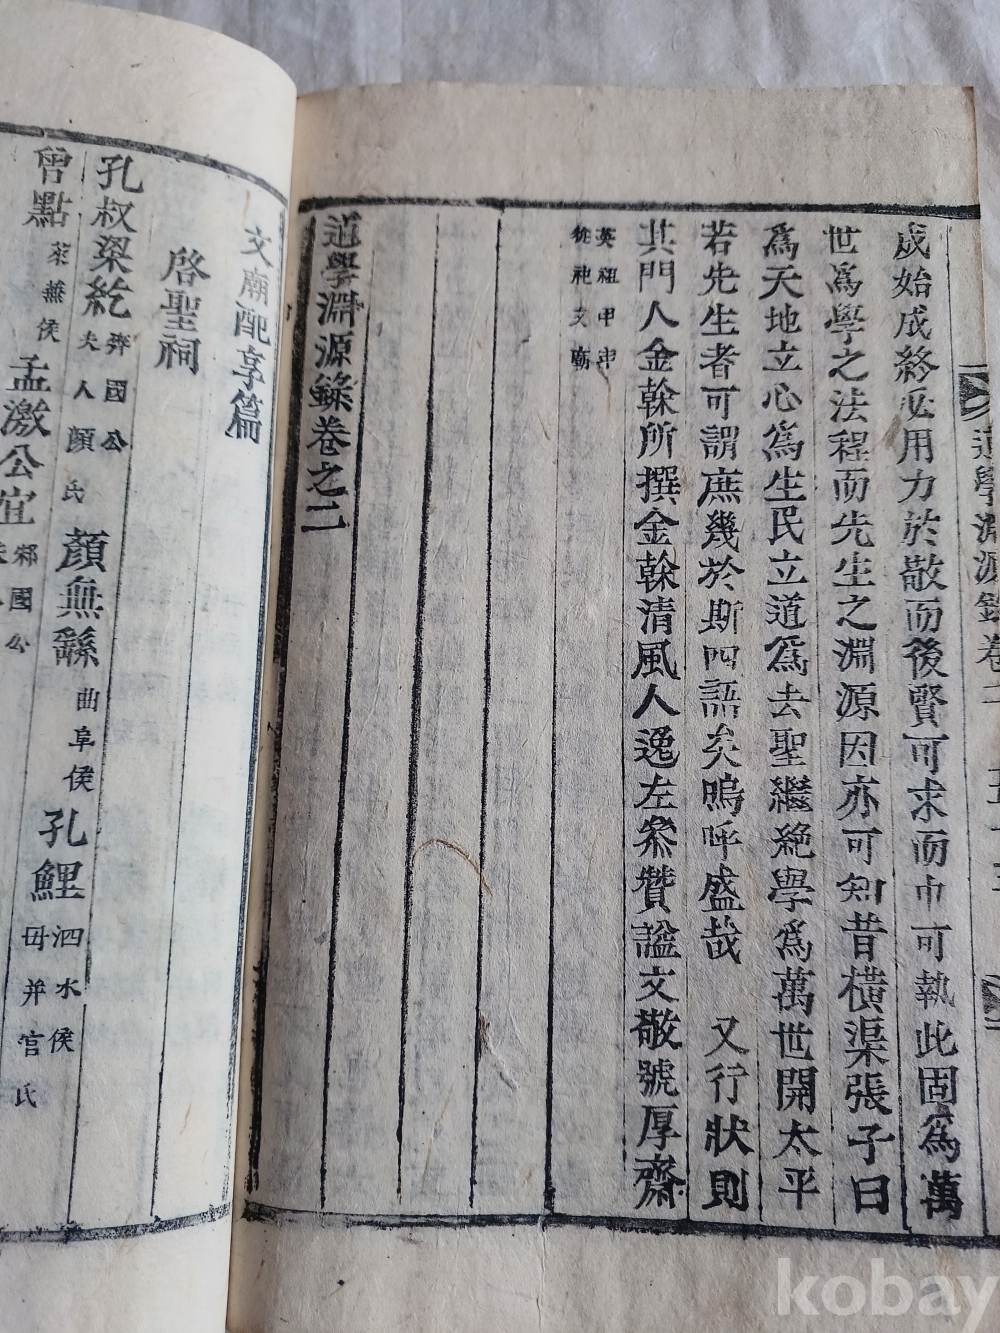 道學淵源錄卷二
成始成終必用力於敬而後賢可求而中可執此固爲萬
世爲學之法程而先生之淵源因亦可知昔橫渠張子曰
爲天地立心爲生民立道爲去聖繼絶學爲萬世開太平
若先生者可謂庶幾於斯四語矣嗚呼盛哉 又行狀則
其門人金榦所撰金榦清風人逸左叅贊諡文敬號厚齋
英祖甲申
從祀文廟
道學淵源錄卷之二
文廟配享篇
啓聖祠
孔叔梁紇 齊國公 夫人顔氏 顔無繇 曲阜侯 孔鯉 泗水侯 母幷官氏
曾點 萊蕪侯 孟激公宜 邾國公
kobay